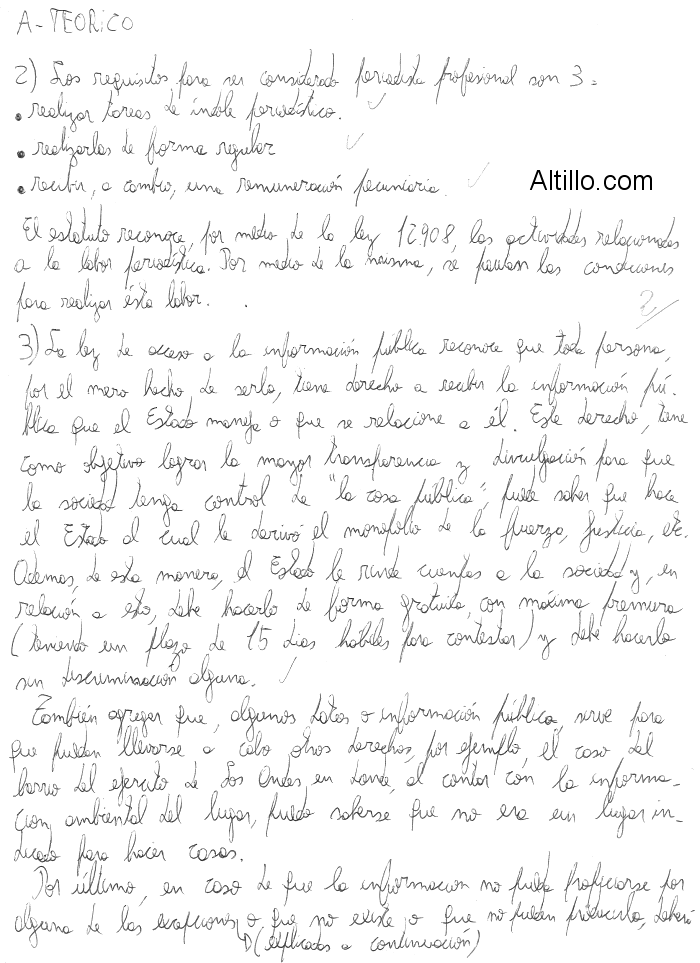 A- TEORICO
2) Los requisitos para ser considerado periodista profesional son 3:
• realizar tareas de índole periodístico.
• realizarlas de forma regular
• recibir, a cambio, una remuneración pecuniaria.
Altillo.com
El estatuto reconoce, por medio de la ley 12.908, las actividades relacionadas
a la labor periodística. Por medio de la misma, se pautan las condiciones
para realizar ésta labor.
2/
3) La ley de acceso a la información pública reconoce que toda persona,
por el mero hecho de serlo, tiene derecho a recibir la información pú-
blica que el Estado maneja o que se relacione a él. Este derecho, tiene
como objetivo lograr la mayor transparencia y divulgación para que
la sociedad tenga control de "la cosa pública", pueda saber que hace
el Estado al cual le derivó el monopolio de la fuerza, justicia, etc.
Ademas, de esta manera, el Estado le rinde cuentas a la sociedad y, en
relación a esto, debe hacerlo de forma gratuita, con máxima premura
(teniendo un plazo de 15 dias hábiles para contestar) y debe hacerlo
sin discriminación alguna.
También agregar que, algunos datos o información pública, sirve para
que puedan llevarse a cabo otros derechos, por ejemplo, el caso del
barrio del ejercito de Los Andes en donde, al contar con la informa-
cion ambiental del lugar, pudo saberse que no era un lugar in-
dicado para hacer casas.
Por último, en caso de que la informacion no pueda propiciarse por
alguna de las excepciones o que no existe o que no puedan producirla, deberá
(explicadas a continuación)